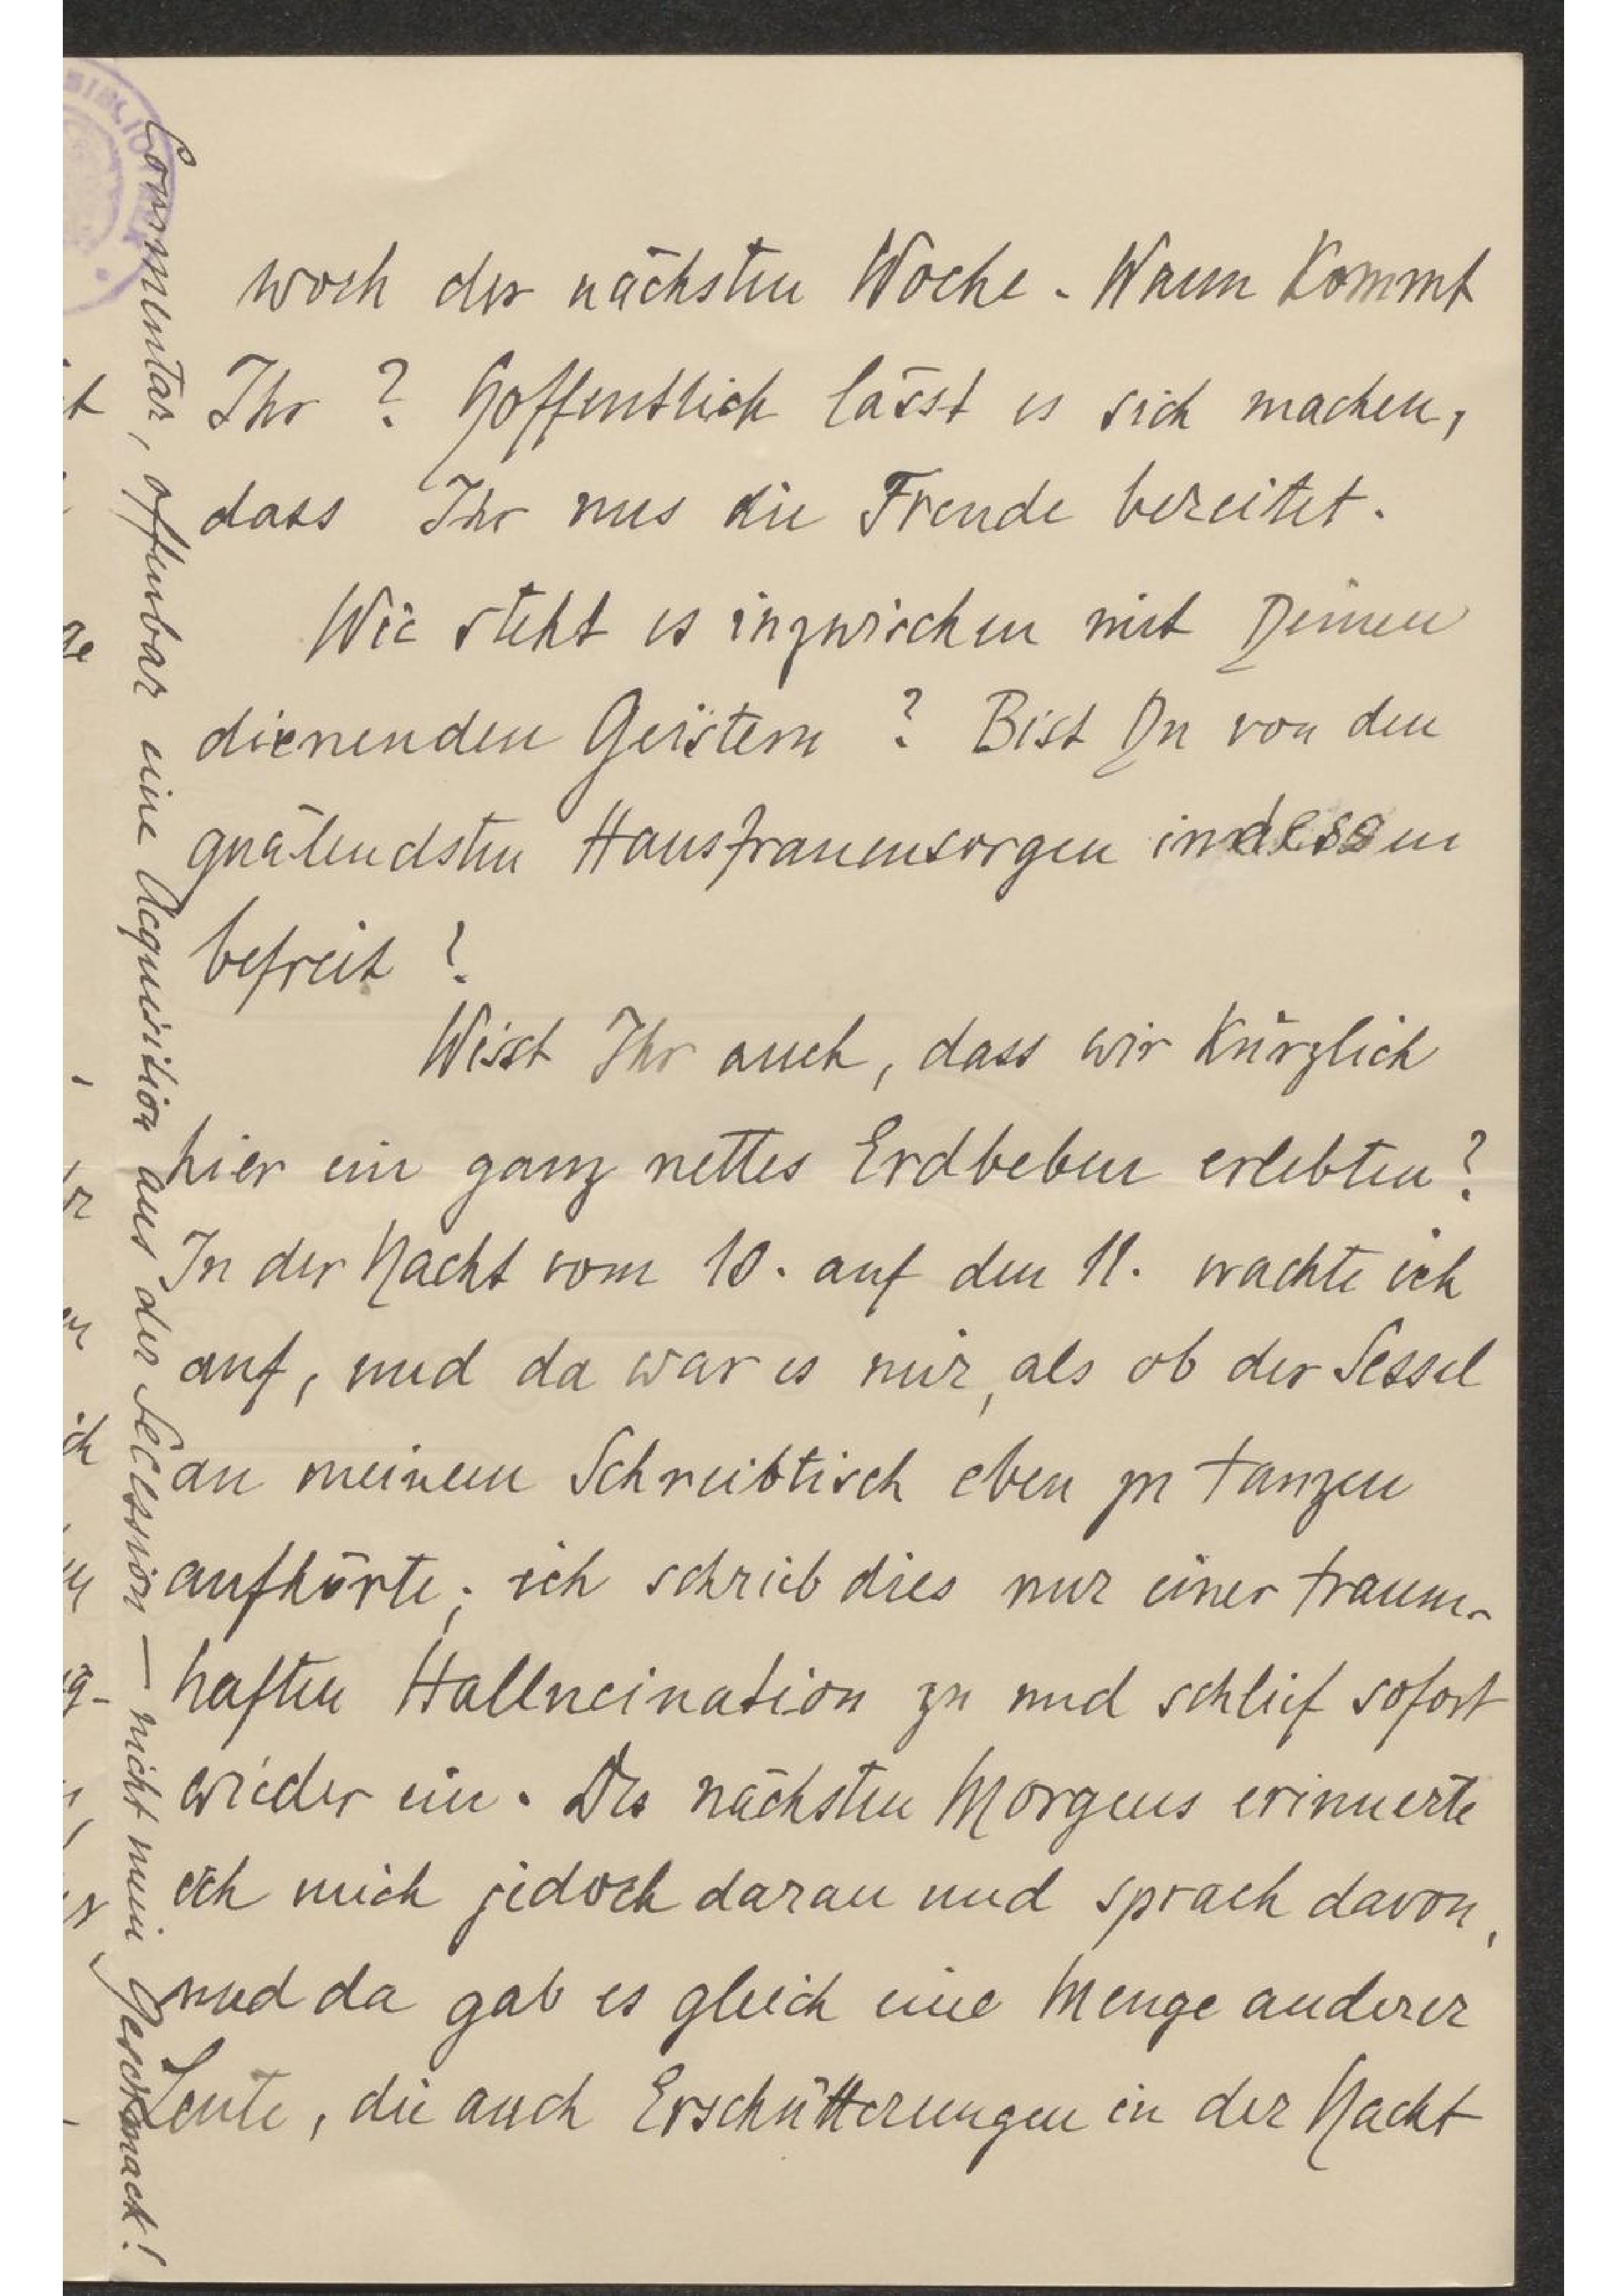 woch der nächsten Woche. Wann kommt
Ihr? Hoffentlich lässt es sich machen,
dass Ihr uns die Freude bereitet.
Wie steht es inzwischen mit Deinen
dienenden Geistern? Bist Du von den
quälendsten Hausfrauensorgen indessen
befreit?
Wisst Ihr auch, dass wir kürzlich
hier ein ganz nettes Erdbeben erlebten?
In der Nacht vom 10. auf den 11. wachte ich
auf, und da war es mir, als ob der Sessel
an meinem Schreibtisch eben zu tanzen
aufhörte; ich schrieb dies nur einer traum-
haften Hallucination zu und schlief sofort
wieder ein. Des nächsten Morgens erinnerte
ich mich jedoch daran und sprach davon,
und da gab es gleich eine Menge anderer
Leute, die auch Erschütterungen in der Nacht
Commentar, offenbar eine Acquisition aus der Secession — nicht mein Geschmack!